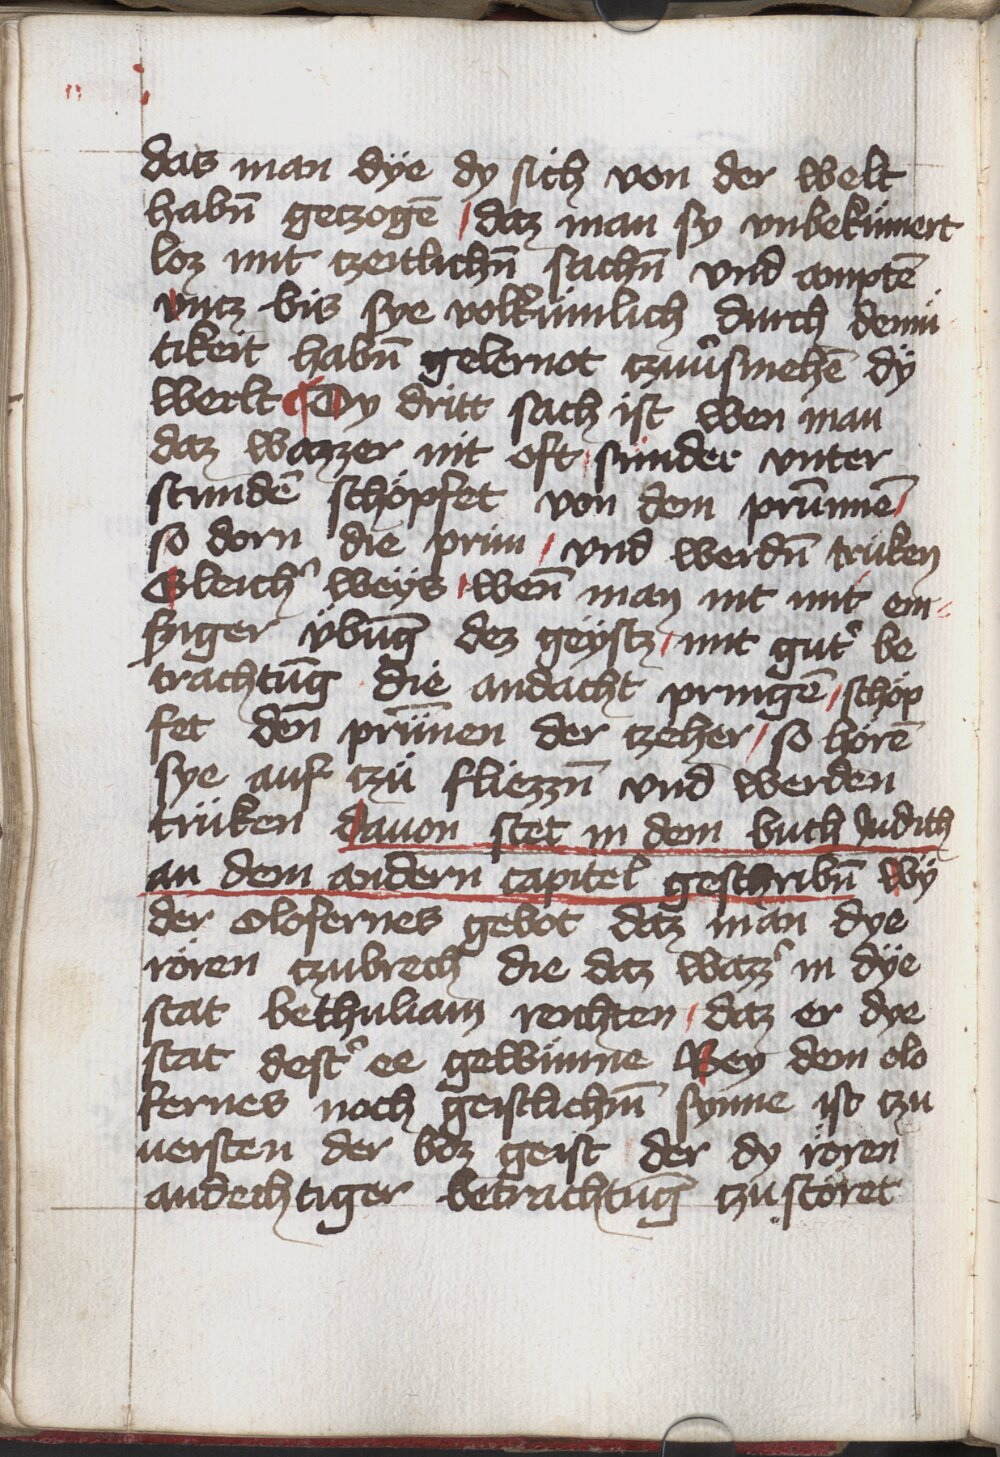 das man dÿe dy sich von der welt
habn̄ geczogē / daz man sy vnbekümert
loz mit czeitlichn̄ sachn̄ vnd comptē
vncz bis sye volkümlich durch demü
tikeit habn̄ gelernot czuuͦsmehē dÿ
werlt Dy dritt sach ist wen man
daz wazzer nit oft sunder vnter
stundē schöpfet von dem prūnnē /
so dorn die prün / vnd werdn̄ trüken
Gleichꝰ weÿs / wen̄ man nit mit em=
sziger ÿbūg dez geÿstz / mit gutꝰ be
trachtūg die andacht pringē / schöp
fet den prün̄en der czeher / so hörē
sye auf czü fliezzn̄ vnd werden
trüken dauon stet in dem buch Judith
an dem andern capitel geschribn̄ Wÿ
der Olofernes gebot daz man dye
rören czubrechꝰ die daz wazzꝰ in dÿe
stat bethuliam reichten / daz er dye
stat destꝰ ee gewünne Bey dem olo
fernes noch geistlichm̄ synne ist czu
uersten der böz geist der dy rören
andechtiger betrachtūg czustöret